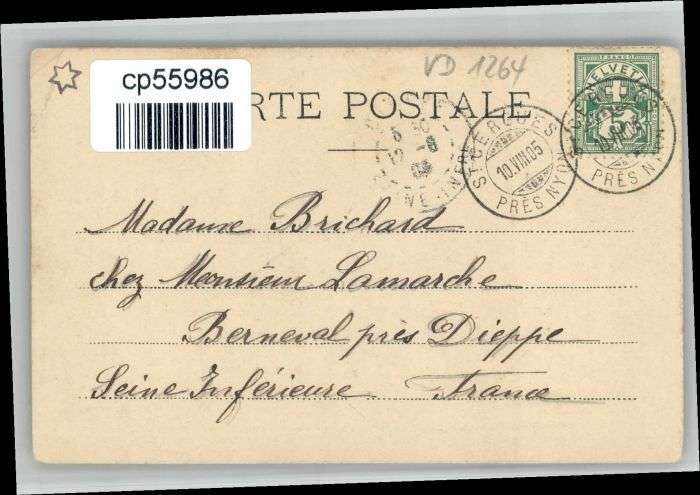 VD 1264
cp55986
RTE POSTALE
FRANCO
HELVETIA
5
PRÈS NYON
ST CERGUES
10.VIII.05
PRÈS NYON
Madame Brichard
chez Monsieur Lamarche
Berneval près Dieppe
Seine Inférieure France